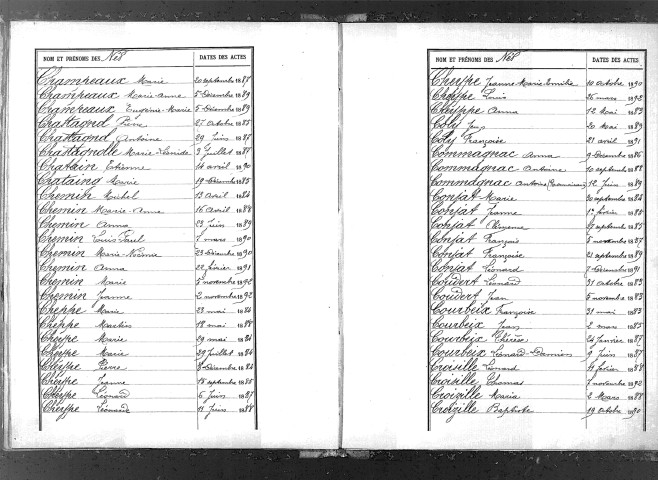 NOM ET PRÉNOMS DES Nés DATES DES ACTES
Champeaux Marie 20 septembre 1887
Champeaux Marie-Anne 5 Décembre 1889
Champeaux Eugénie-Marie 5 Décembre 1889
Chastagnd 27 Octobre 1885
Chastagnd Antoine 29 Juin 1887
Chastagnolle Marie 3 Juillet 1887
Chatain Etienne 14 avril 1890
Chataing Marie 19 Décembre 1885
Chemin Michel 13 avril 1884
Chemin Marie-Anne 16 avril 1888
Chemin Anna 23 Juin 1889
Chemin Louis Paul 7 mars 1890
Chemin Marie 23 Décembre 1890
Chemin Anna 22 février 1891
Chemin Marie 5 novembre 1892
Chemin Jeanne 2 novembre 1892
Cheppe Marie 23 mai 1884
Cheppe 18 mai 1888
Cheppe Marie 29 mai 1884
Cheppe Marie 29 Juillet 1884
Cheppe Pierre 8 Décembre 1884
Cheppe Jeanne 18 septembre 1885
Cheppe Léonard 6 Juin 1887
Cheppe Léonarde 11 Juin 1888
NOM ET PRÉNOMS DES Nés DATES DES ACTES
Cheppe Jeanne-Marie 10 Octobre 1890
Cheppe Louis 26 mars 1892
Cheyppe Anna 12 Mai 1883
Coly 20 Mai 1889
Coly Françoise 21 avril 1891
Commagnac Anna 9 Décembre 1886
Commagnac Antoine 10 septembre 1888
Commagnac Antoine 12 Juin 1889
Conjat Marie 30 septembre 1884
Conjat Jeanne 1er février 1886
Conjat 27 septembre 1885
Conjat François 5 novembre 1887
Conjat Françoise 21 septembre 1889
Conjat Léonard 7 Décembre 1891
Coudert Léonard 31 Octobre 1883
Coudert Jean 5 novembre 1883
Courbeix Françoise 31 mai 1883
Courbeix Jean 2 mars 1885
Courbeix Thérèse 24 Janvier 1887
Courbeix Léonard-Damien 9 Juin 1887
Croisille Léonard 11 février 1888
Croisille Thomas 7 novembre 1892
Croizille Maria 2 Mars 1888
Croizille Baptiste 19 Octobre 1890